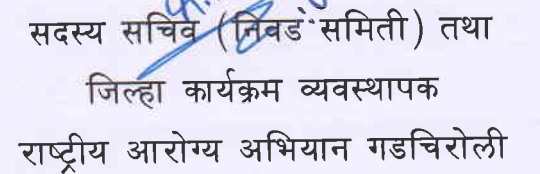 सदस्य सचिव (निवड समिती) तथा
जिल्हा कार्यक्रम व्यवस्थापक
राष्ट्रीय आरोग्य अभियान गडचिरोली